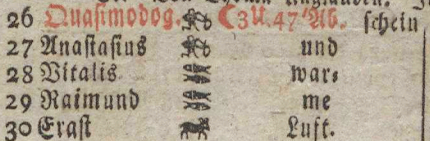 26 Quasimodog. ☾3 U. 47 Ab. schein
27 Anastasius und
28 Vitalis war⸗
29 Raimund me
30 Erast Luft.